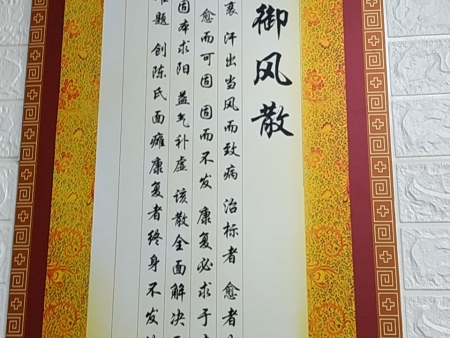 御风散
衰 汗出当风而致病 治标者 愈者
愈而可固 固而不发 康复必求于
固本求阳 益气补虚 该散全面解决
题 创陈氏面瘫康复者终身不发